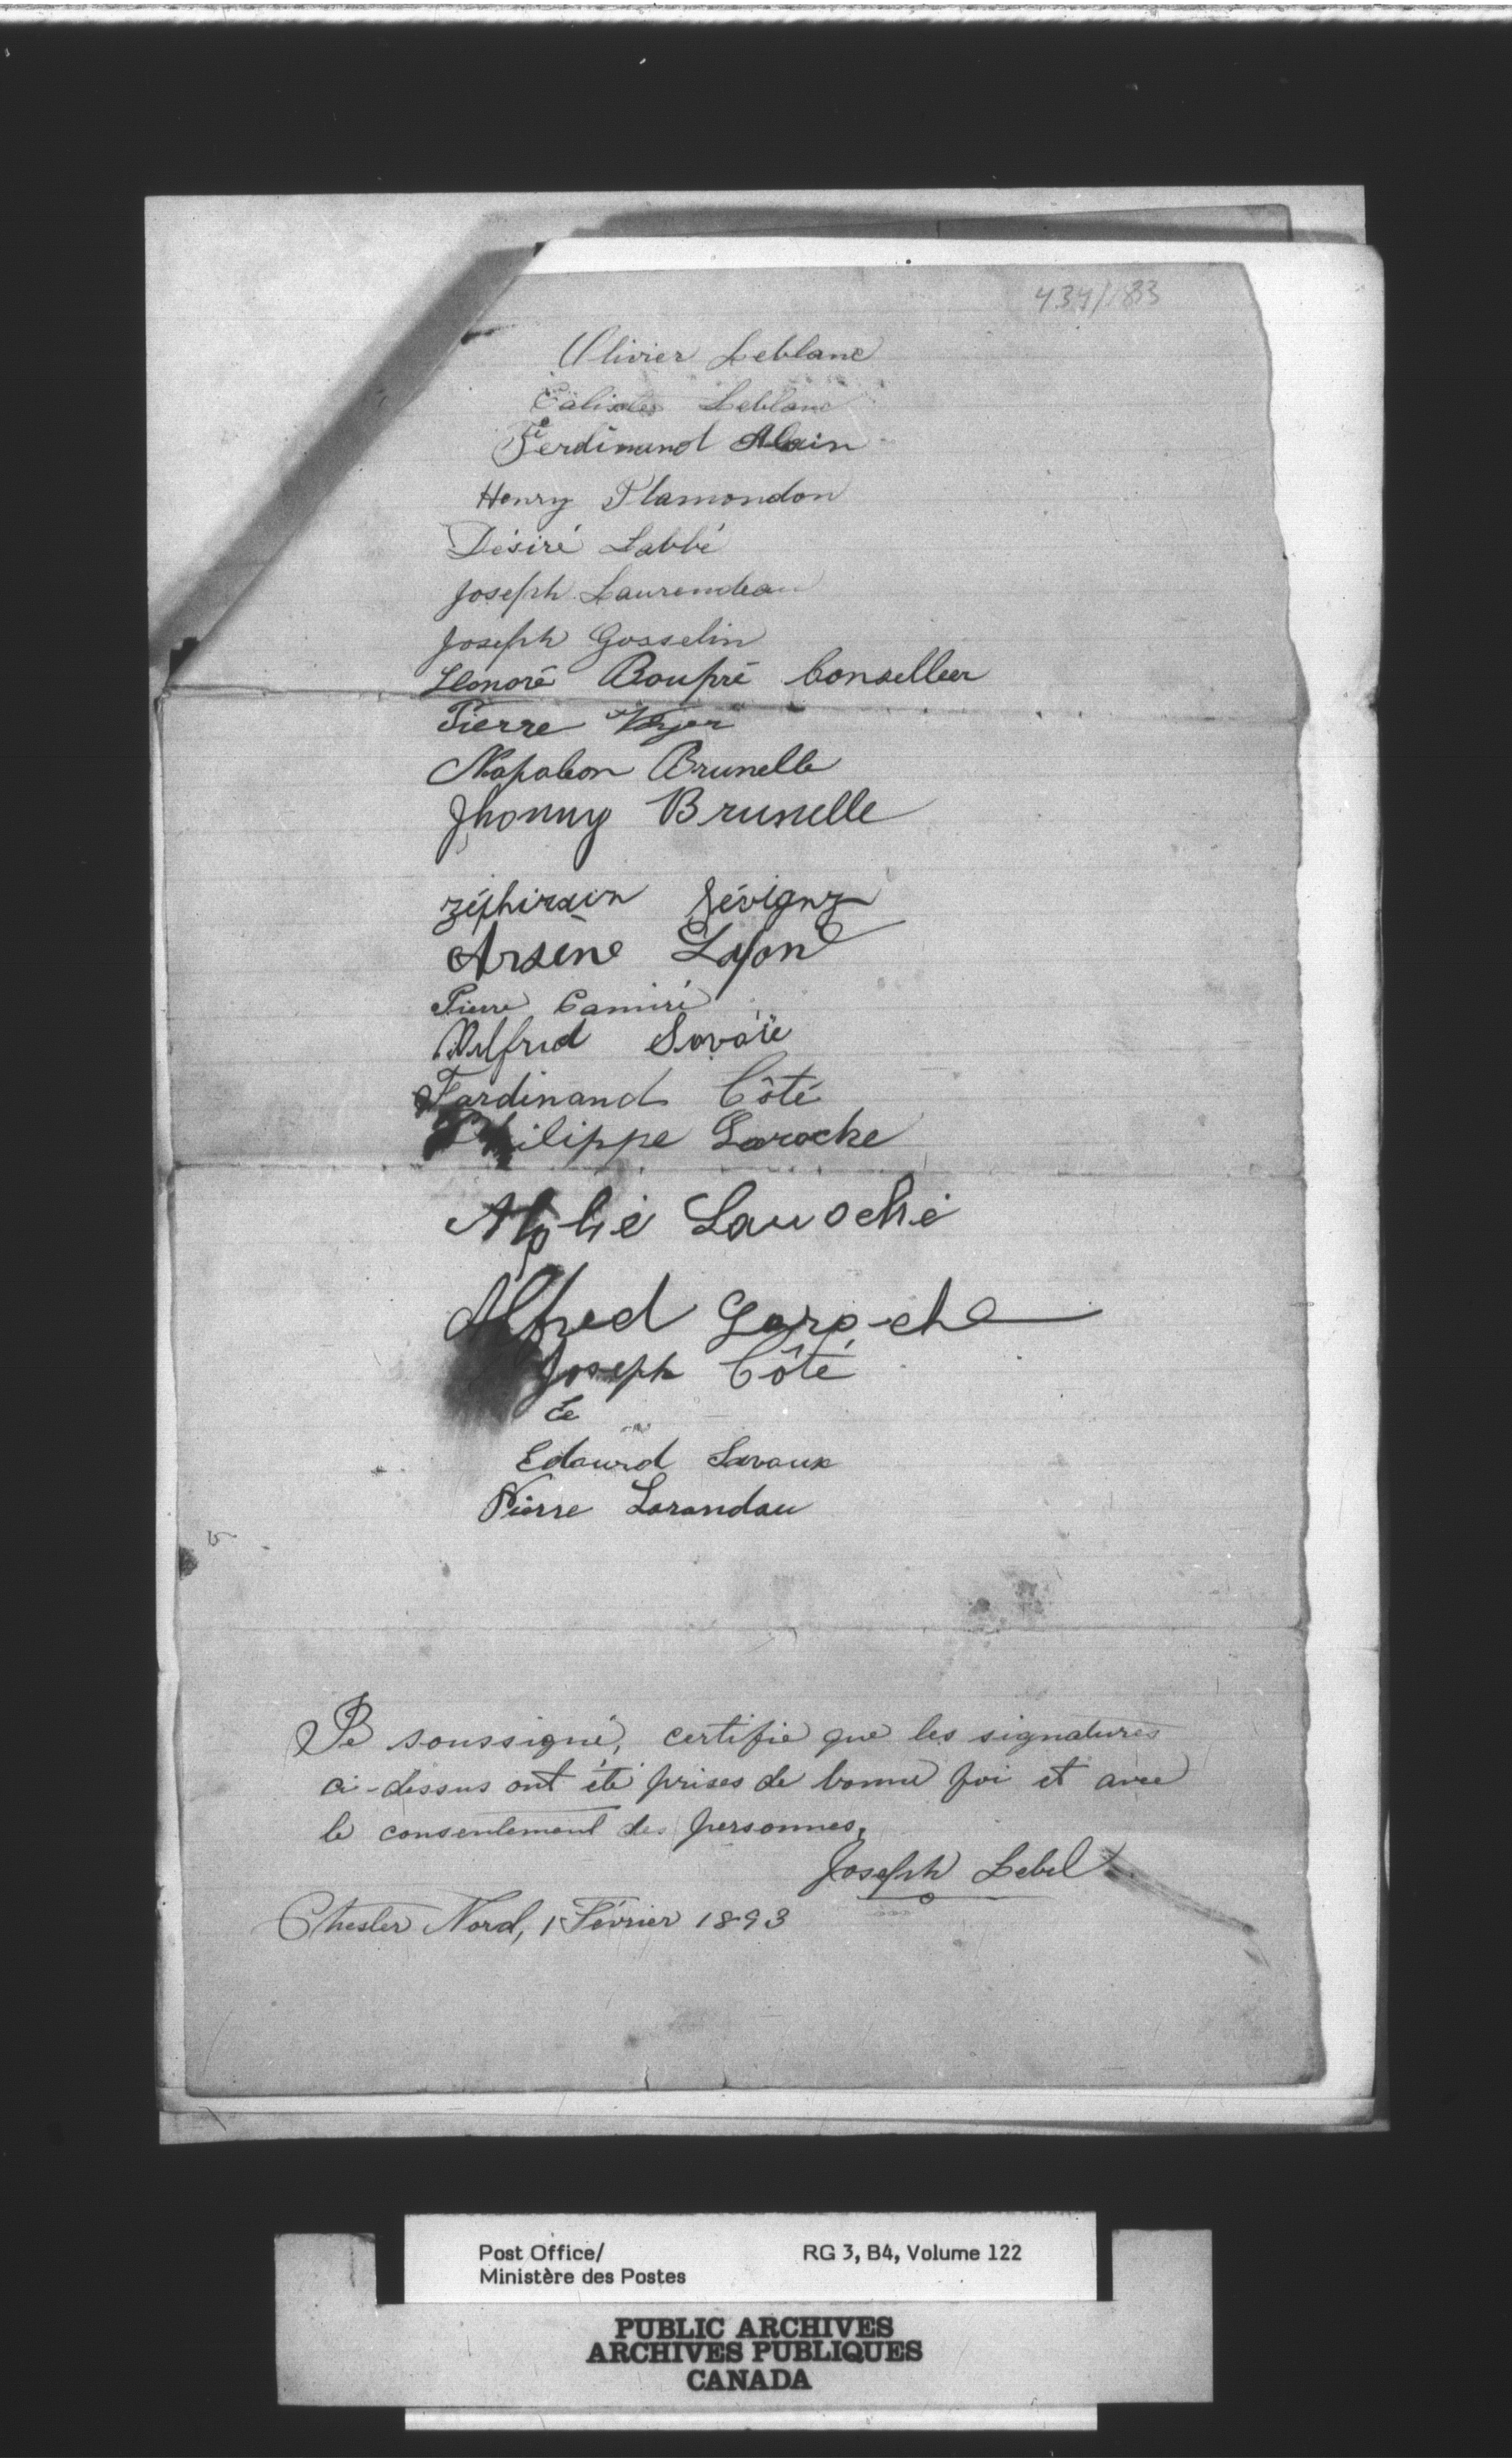 Olivier Leblanc
Calixte Leblanc
Ferdinand Alain
Henry Plamondon
Désiré Labbé
Joseph Laurendeau
Joseph Gosselin
Léonoré Boupré Conselleer
Pierre
Napoleon Brunelle
Jhonny Brunelle
zéphirain Sévigny
Arsène
Pierre Camiré
Wilfrid Savoïe
Fardinand Côté
Philippe Laroche
Alfred Laroche
Joseph Côté
Ce
Edouard Lavaux
Pierre Larandau
Je soussigné, certifie que les signatures
ci-dessus ont été prises de bonne foi et avec
le consentement des personnes,
Joseph Lebel
Chester Nord, 1 Février 1893
Post Office/ RG 3, B4, Volume 122
Ministère des Postes
PUBLIC ARCHIVES
ARCHIVES PUBLIQUES
CANADA